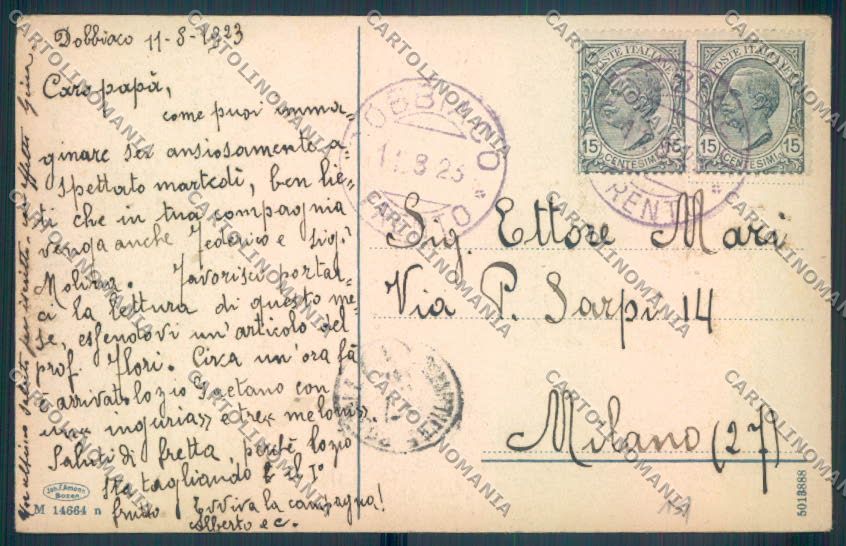 Dobbiaco 11-8-1923
Caro papà,
come puoi imma-
ginare sei ansiosamente a-
spettato martedì, ben lie-
ti che in tua compagnia
venga anche Federico e Sig.
Molina. Favorisci portar-
ci la lettura di questo me-
se, essendovi un'articolo del
prof. Flori. Circa un'ora fà
è arrivato lo zio Gaetano con
una "inguria" e tre "meloni".
Saluti di fretta, perchè lo zio
sta tagliando il 1°
frutto Evviva la campagna!
Alberto e C.
POSTE ITALIANE
15 CENTESIMI 15
POSTE ITALIANE
15 CENTESIMI 15
DOBBIACO
TRENTO
Sig. Ettore Mari
Via P. Sarpi 14
Milano (27)
Joh. F. Amonn
Bozen
M 14664 n
CARTOLINOMANIA